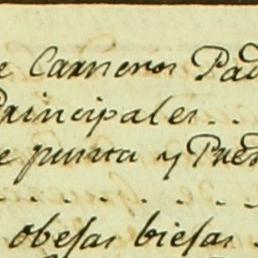 e Carneros Pad
Principales . .
e punta y Pue
. . . . . . . .
obejas biejas .